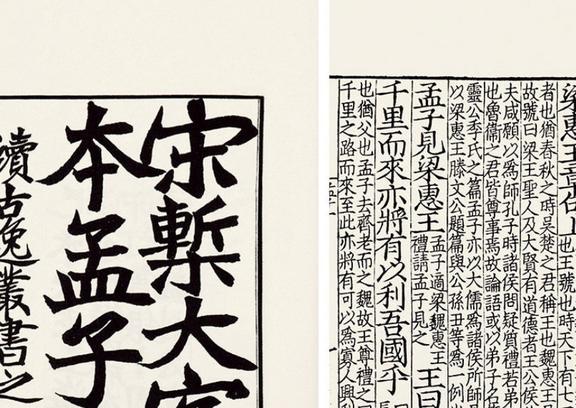 宋槧大字
本孟子
續古逸叢書之
梁惠王章句上
也王號也時天下有七
者也猶春秋之時吳楚之君稱王也魏惠王
故號曰梁王聖人及大賢有道德者王公侯
夫咸願以為師孔子時諸侯問疑質禮若弟
也魯衛之君皆尊事焉故論語或以弟子名
靈公季氏之篇孟子亦以大儒為諸侯所師
以梁惠王滕文公題篇與公孫丑等為一例
孟子見梁惠王 孟子適梁魏惠王禮請孟子見之 王曰
千里而來亦將有以利吾國乎
也猶父也孟子去齊老而之魏故王尊禮之曰
千里之路而來至此亦將有可以為寡人興利